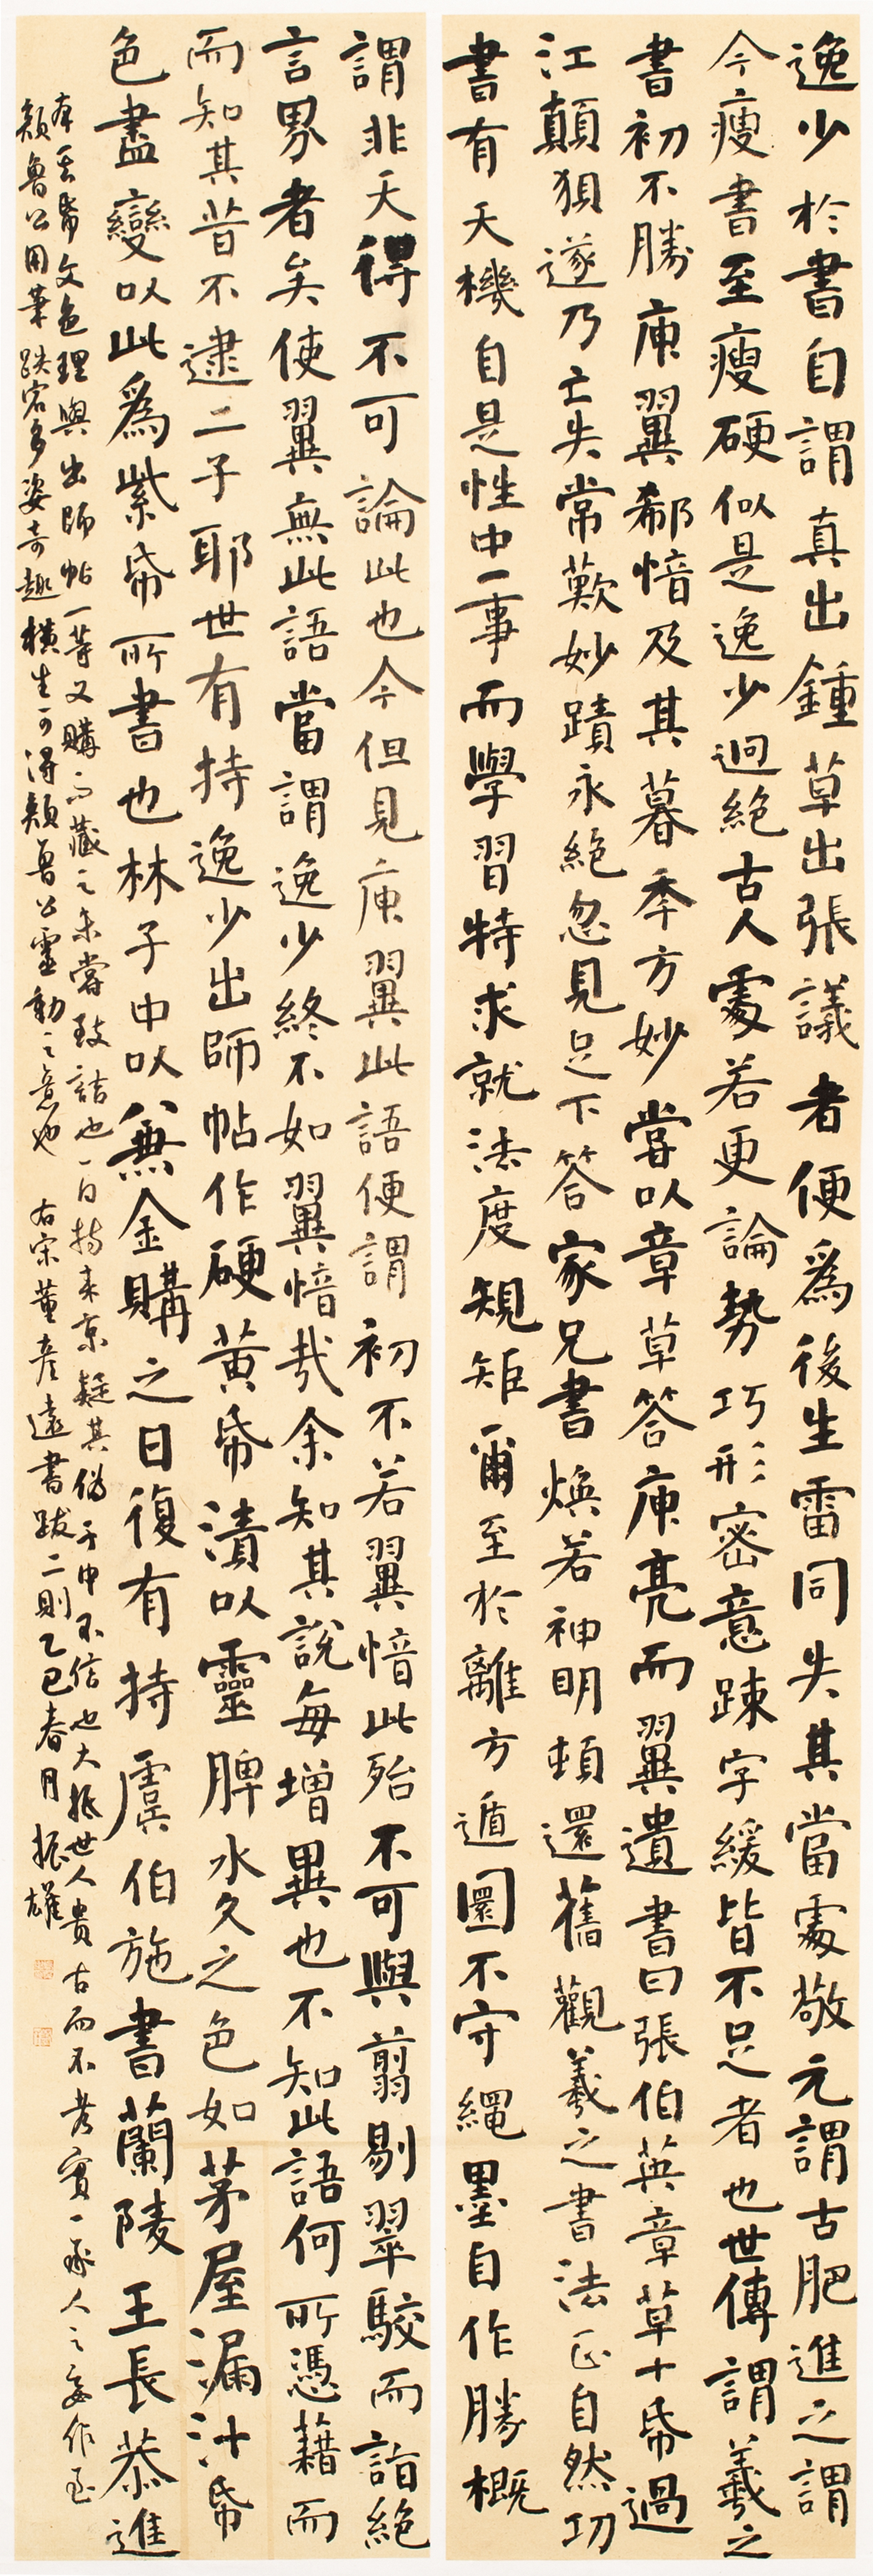 逸少於書自謂真出鍾草出張議者便為後生雷同失其當處敬元謂古肥進之謂
今瘦書至瘦硬似是逸少迥絕古人處若更論勢巧形密意疎字緩皆不足者也世傳謂羲之
書初不勝庾翼郗愔及其暮年方妙嘗以章草答庾亮而翼遺書曰張伯英章草十帋過
江顛狽遂乃亡失常歎妙蹟永絕忽見足下答家兄書煥若神明頓還舊觀羲之書法正自然功
書有天機自是性中一事而學習特求就法度規矩爾至於離方遁圓不守繩墨自作勝概
謂非天得不可論此也今但見庾翼此語便謂初不若翼愔此殆不可與翦剔翠駮而詣絕
言界者矣使翼無此語當謂逸少終不如翼愔哉余知其說每增異也不知此語何所憑藉而
而知其昔不逮二子耶世有持逸少出師帖作硬黃帋漬以靈脾水久之色如茅屋漏汁帋
色盡變以此為紫帋所書也林子中以八兼金購之日復有持虞伯施書蘭陵王長恭進
本至帋文色理與出師帖一等又購而藏之未嘗致詰也一日持來京疑其偽子中不信也大抵世人貴古而不考實一承人之妄作至
顏魯公用筆跌宕多姿奇趣橫生可得顏魯公靈動之意也 右宋董彥遠書跋二則乙巳春月振雄